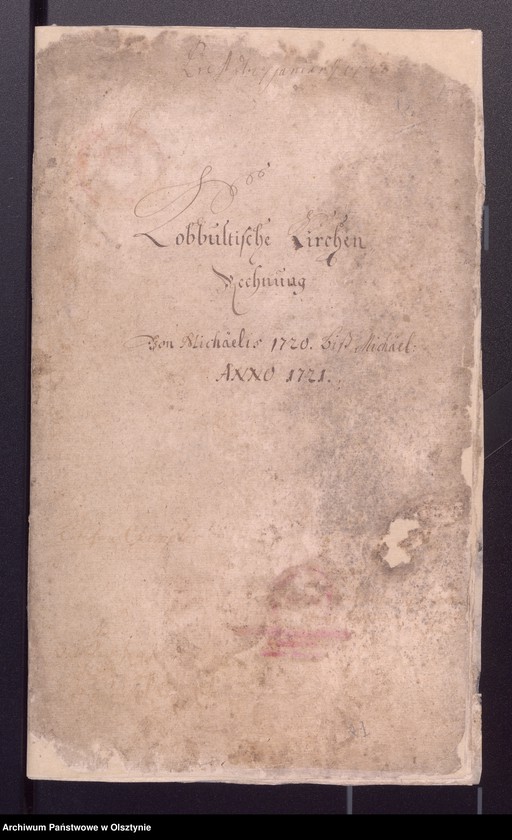 Lobbultische Kirchen
Rechnung
Von Michaelis 1720. biß Michael.
ANNO 1721.
Archiwum Państwowe w Olsztynie